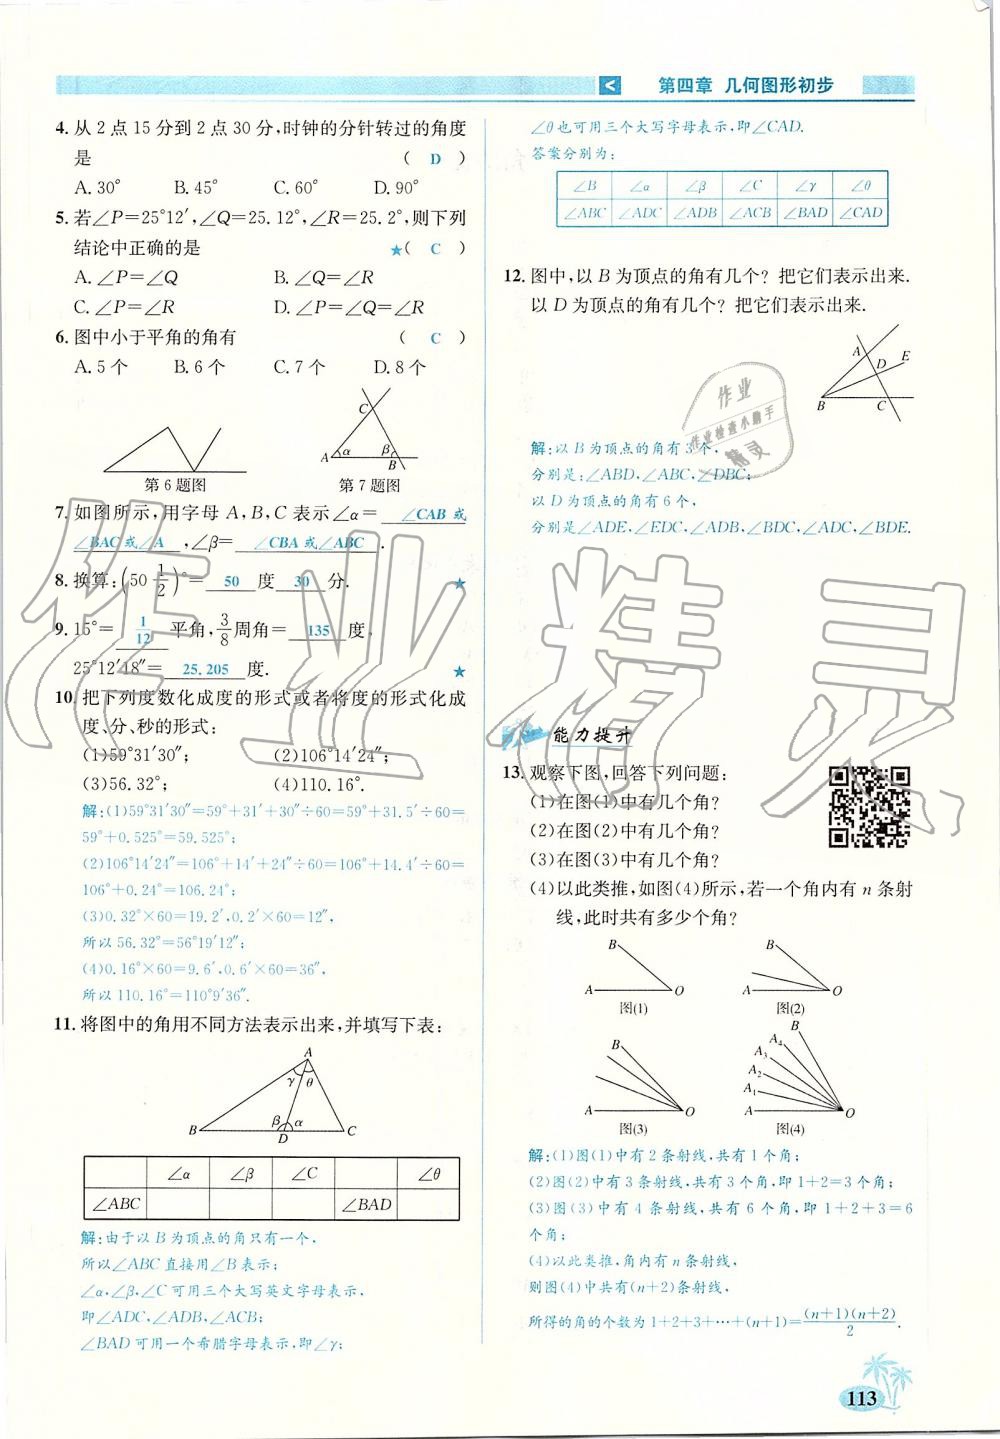 < 第四章 几何图形初步
4. 从 2 点 15 分到 2 点 30 分,时钟的分针转过的角度
是 ( D )
A. 30° B. 45° C. 60° D. 90°
5. 若∠P=25°12′,∠Q=25.12°,∠R=25.2°,则下列
结论中正确的是 ★( C )
A. ∠P=∠Q B. ∠Q=∠R
C. ∠P=∠R D. ∠P=∠Q=∠R
6. 图中小于平角的角有 ( C )
A. 5 个 B. 6 个 C. 7 个 D. 8 个
C
A α β B
第 6 题图 第 7 题图
7. 如图所示,用字母 A,B,C 表示∠α= ∠CAB 或
∠BAC或∠A ,∠β= ∠CBA 或∠ABC .
8. 换算:(50 1/2)°= 50 度 30 分. ★
9. 15°= 1/12 平角, 3/8 周角= 135 度,
25°12′18″= 25.205 度. ★
10. 把下列度数化成度的形式或者将度的形式化成
度、分、秒的形式:
(1)59°31′30″; (2)106°14′24″;
(3)56.32°; (4)110.16°.
解:(1)59°31′30″=59°+31′+30″÷60=59°+31.5′÷60=
59°+0.525°=59.525°;
(2)106°14′24″=106°+14′+24″÷60=106°+14.4′÷60=
106°+0.24°=106.24°;
(3)0.32°×60=19.2′,0.2′×60=12″,
所以 56.32°=56°19′12″;
(4)0.16°×60=9.6′,0.6′×60=36″,
所以 110.16°=110°9′36″.
11. 将图中的角用不同方法表示出来,并填写下表:
A
γ θ
β α
B D C
∠α ∠β ∠C ∠θ
∠ABC ∠BAD
解:由于以 B 为顶点的角只有一个,
所以∠ABC 直接用∠B 表示;
∠α,∠β,∠C 可用三个大写英文字母表示,
即∠ADC,∠ADB,∠ACB;
∠BAD 可用一个希腊字母表示,即∠γ;
∠θ也可用三个大写字母表示,即∠CAD.
答案分别为:
∠B ∠α ∠β ∠C ∠γ ∠θ
∠ABC ∠ADC ∠ADB ∠ACB ∠BAD ∠CAD
12. 图中,以 B 为顶点的角有几个? 把它们表示出来.
以 D 为顶点的角有几个? 把它们表示出来.
A D E
B C
作业
作业检查小助手
精灵
解:以 B 为顶点的角有 3 个,
分别是:∠ABD,∠ABC,∠DBC;
以 D 为顶点的角有 6 个,
分别是:∠ADE,∠EDC,∠ADB,∠BDC,∠ADC,∠BDE.
作业精灵
能力提升
13. 观察下图,回答下列问题:
(1)在图(1)中有几个角?
(2)在图(2)中有几个角?
(3)在图(3)中有几个角?
(4)以此类推,如图(4)所示,若一个角内有 n 条射
线,此时共有多少个角?
B A O B A O
图(1) 图(2)
B A O B A₄ A₃ A₂ A₁ A O
图(3) 图(4)
解:(1)图(1)中有 2 条射线,共有 1 个角;
(2)图(2)中有 3 条射线,共有 3 个角,即 1+2=3 个角;
(3)图(3)中有 4 条射线,共有 6 个角,即 1+2+3=6
个角;
(4)以此类推,角内有 n 条射线,
则图(4)中共有(n+2)条射线,
所得的角的个数为 1+2+3+…+(n+1)=(n+1)(n+2)/2.
113